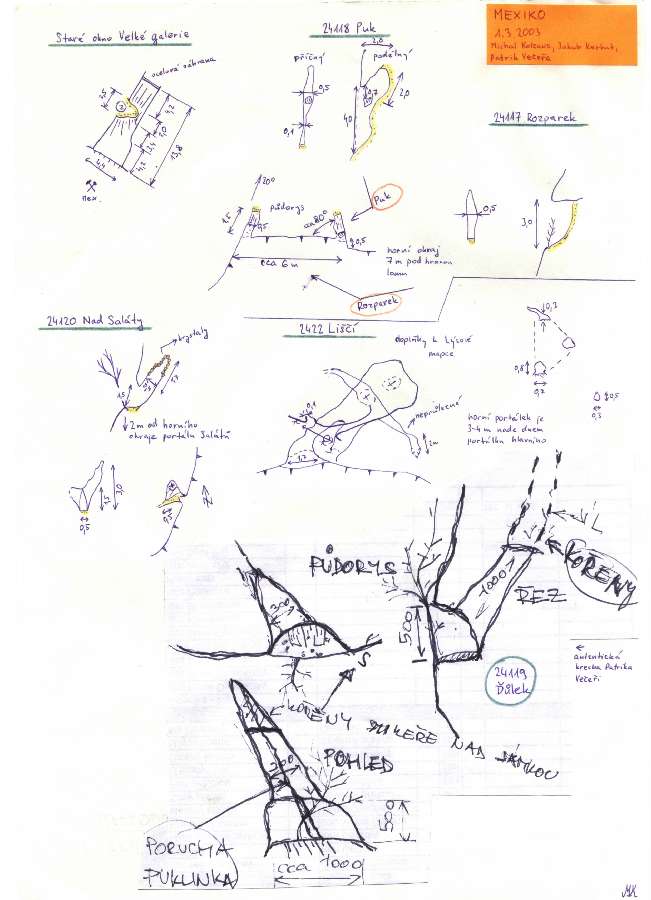 MEXIKO
1.3.2003
Michal Kolčava, Jakub Kerhut,
Patrik Večeřa
Staré okno Velké galerie
ocelová zábrana
2,4
4,2
2,0
1,4
4,2
13,8
4,4
mex.
24118 Puk
příčný
podélný
2,0
0,5
0,7
2,0
0,1
4,0
20°
půdorys
1,5
0,5
cca 80°
Puk
0,5
cca 6 m
horní okraj
7 m pod hranou
lomu
Rozparek
24117 Rozparek
0,5
3,0
24120 Nad Saláty
krystaly
1,5
2m od horního
okraje portálu Salátů
1,5
3,0
0,5
0,5
N
2422 Liščí
doplňky k Lýsově
mapce
0,1
neprůlezné
1,7
2m
horní portálek je
3-4 m nade dnem
portálku hlavního
0,2
0,8
0,2
0,5
0,3
PŮDORYS
300
S
1000
500
ŘEZ
KOŘENY
24119
Důlek
autentická
kresba Patrika
Večeři
KOŘENY KEŘE NAD JAMKOU
POHLED
300
500
cca 1000
PORUCHA
PUKLINKA
MK